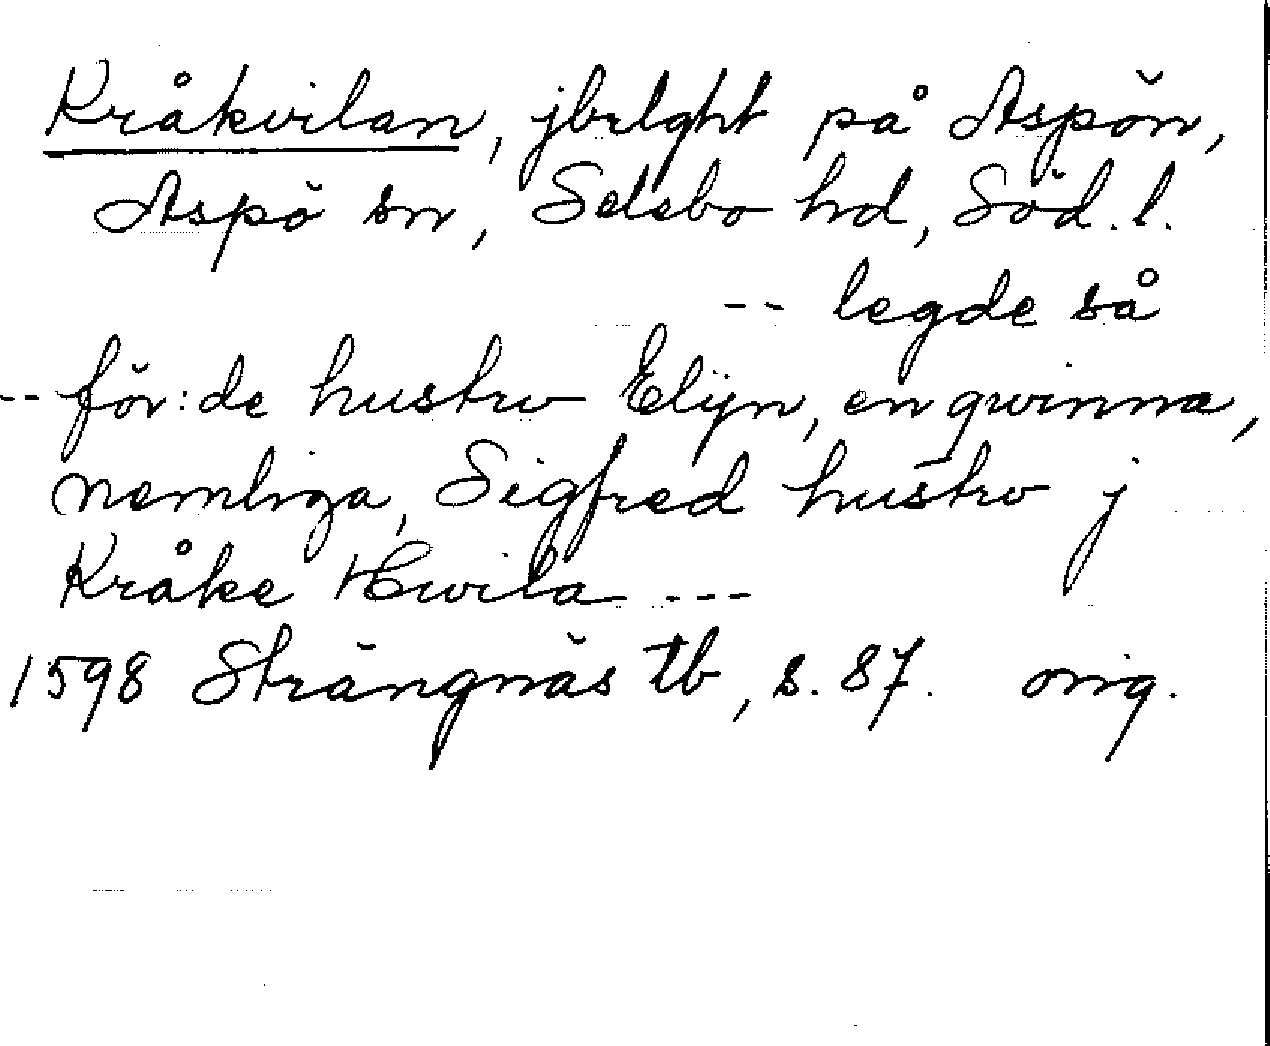 Kråkvilan, jbrlght på Aspön,
Aspö sn, Selebo hd, Söd. l.
-- legde så
-- för:de hustrv Elijn, en qwinna,
nemliga, Sigfred hustrv j
Kråke Hwila ---
1598 Strängnäs tb, s. 87. orig.